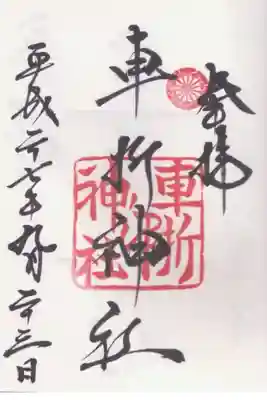 奉拝
車折神社
車折
神社
平成二十七年九月二十三日